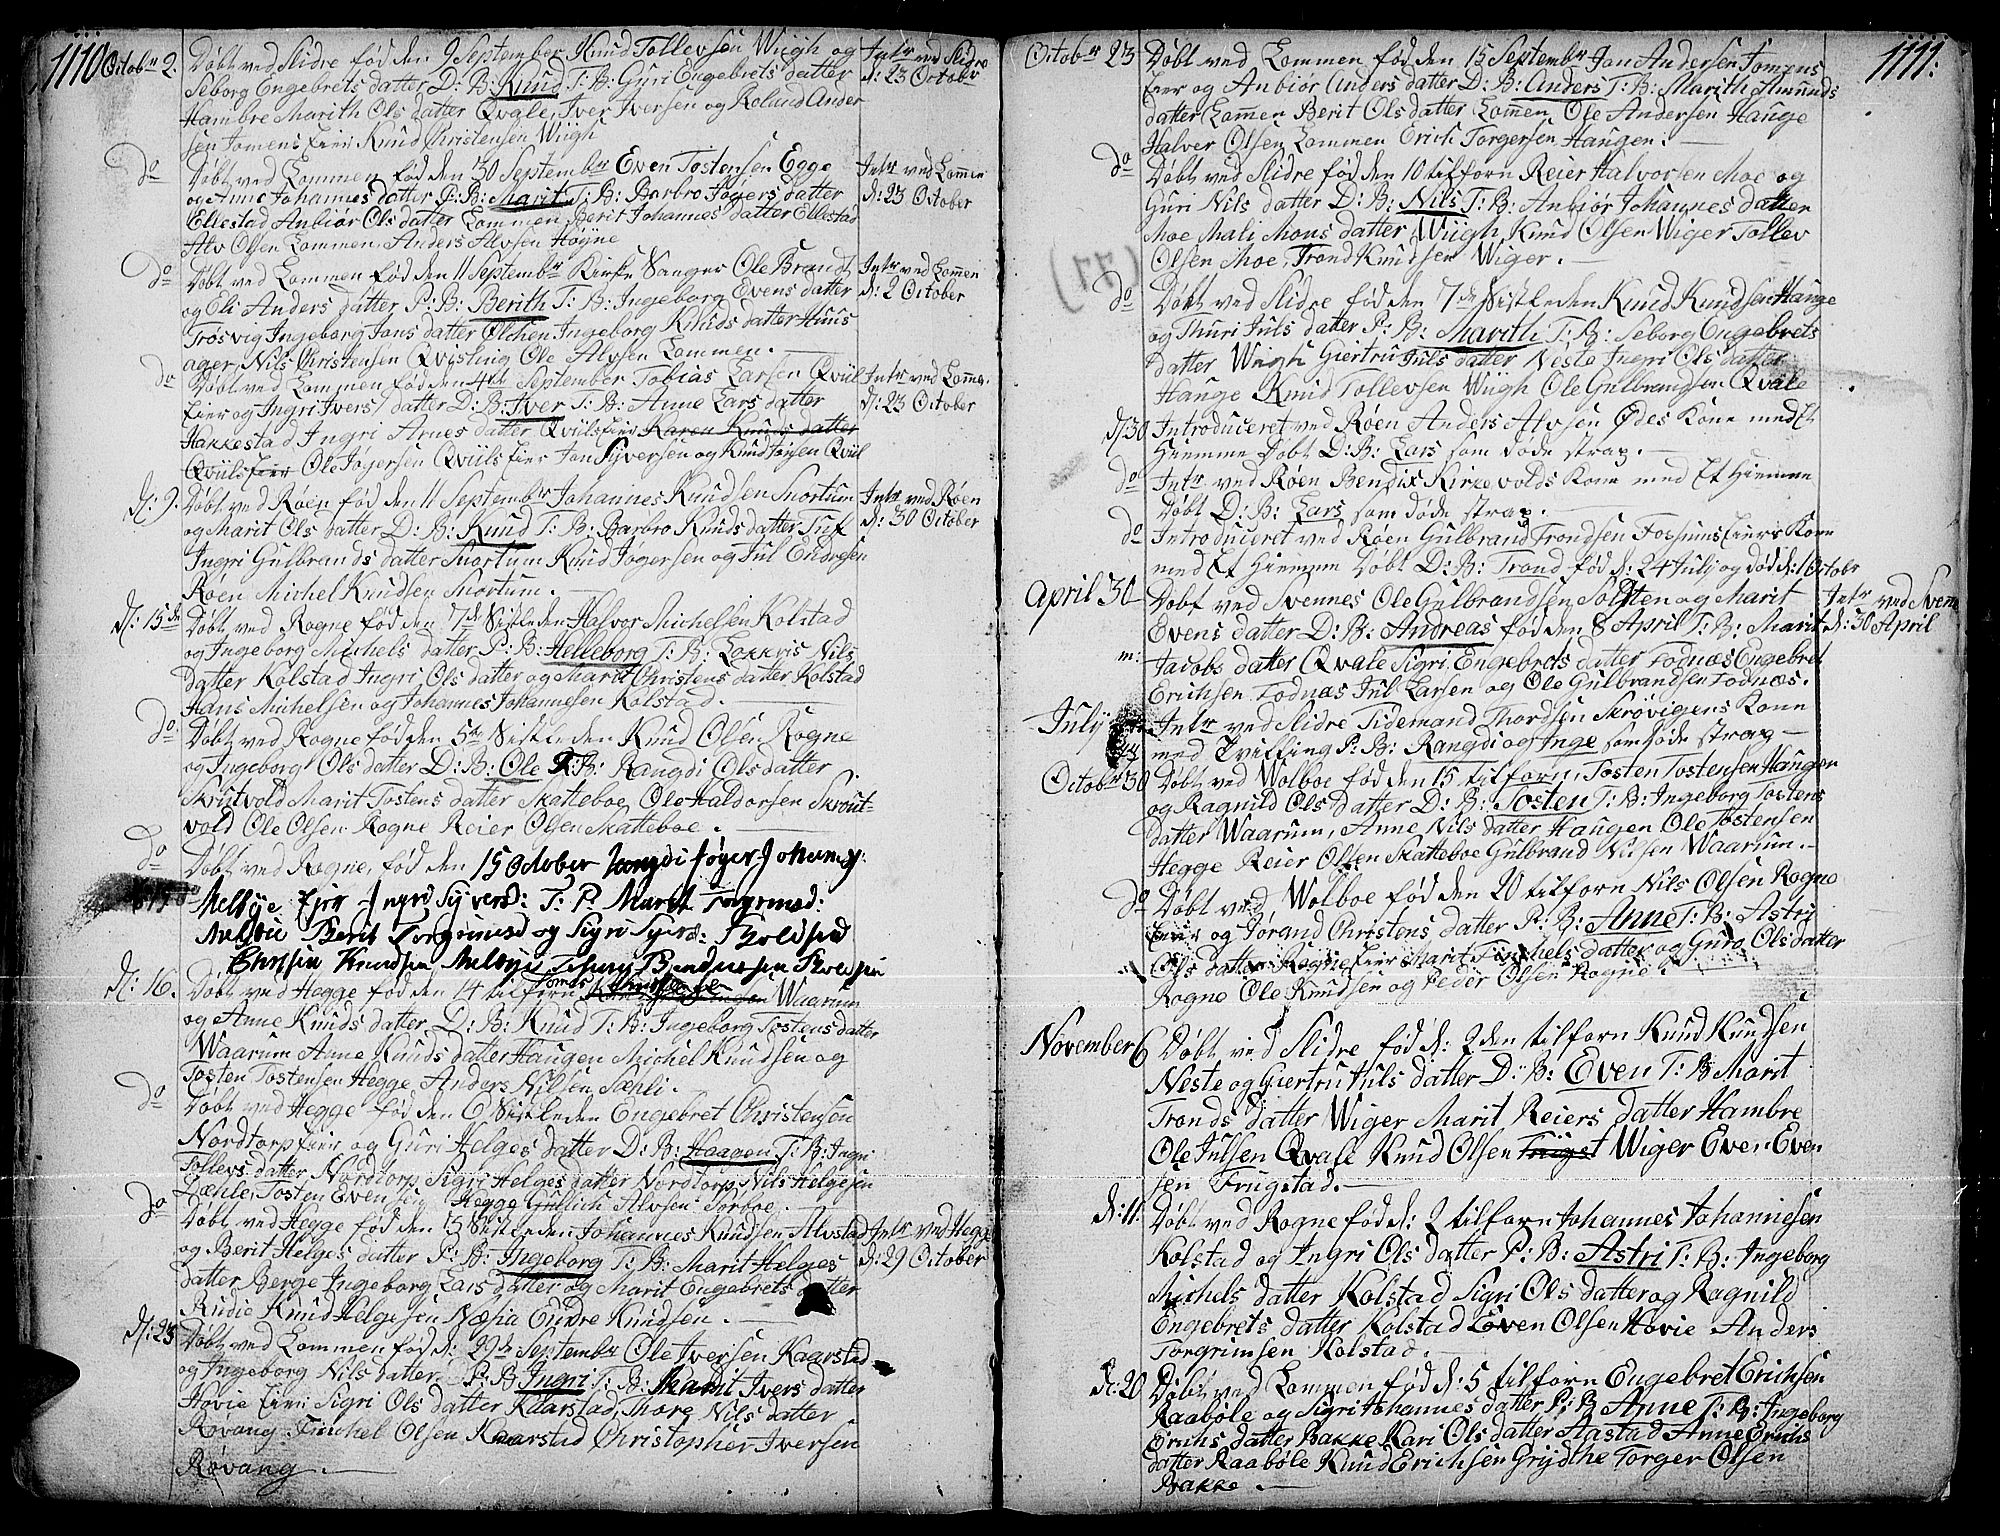 1110
Octobr 2. Døbt ved Slidre fød den 9 September Knud Tollevsen Wiigh og Intr ved Slidre
Seborg Engebrets datter D: B: Knud T: B: Guri Engebrets datter d: 23 Octobr
Hambre Marith Ols datter Qvale, Iver Iversen og Roland Ander
sen Tomens Eier Knud Christensen Wiigh
do Døbt ved Lommen fød den 30 Septembr Even Tostensen Egge Intr ved Lomen
og Anne Johannes datter P: B: Marit T: B: Barbro Jøgers datter d: 23 October
Ellestad Anbiør Ols datter Lommen Berit Johannes datter Ellestad
Alv Olsen Lommen, Anders Alvsen Høyne
do Døbt ved Lommen fød den 11 Septembr Kirke Sanger Ole Brandt Intr ved Lomen
og Eli Anders datter P: B: Berith T: B: Ingeborg Evens datter d: 2 October
Trøsvig Ingeborg Jans datter Ølchen Ingeborg Knuds datter Huus
ager, Nils Christensen Qvisting Ole Alvsen Lommen.
do Døbt ved Lommen fød den 4de September Tobias Larsen Qviil Intr ved Lomen
Eier og Ingri Ivers datter D: B: Iver T: B: Anne Lars datter d: 23 October
Hakkestad Ingri Arnes datter Qviils Eier Karen Knuds datter
Qviils Eier Ole Jøgersen Qviils Eier Jan Syversen og Knud Qviil
d: 9. Døbt ved Røen fød den 11 Septembr Johannes Knudsen Snortum Intr ved Røen
og Marit Ols datter D: B: Knud T: B: Barbro Knuds datter Tuf d: 30 October
Ingri Gulbrands datter Snortum Knud Jøgersen og Jul Endresen
Røen Michel Knudsen Snortum.
d: 15de Døbt ved Rogne fød den 7de Sistleden Halvor Michelsen Kolstad
og Ingeborg Michels datter P: B: Helleborg T: B: Lokkris Nils
datter Kolstad Ingri Ols datter og Marit Christens datter Kolstad
Hans Michelsen og Johannes Johannesen Kolstad.
do Døbt ved Rogne fød den 5te Sistleden Knud Olsen Rogne
og Ingeborg Ols datter D: B: Ole T: B: Rangdi Ols datter
Skrutvold Marit Tostens datter Skatteboe Ole Haldorsen Skrout
vold Ole Olsen Rogne Reier Olsen Skatteboe.
do Døbt ved Rogne, fød den 15 October Rangdi Jøger Johannes:
Melbye Eier Ingri Syversd: T: P. Marit Torgrimsd:
Melbye Berit Torgrimsd og Sigri Syversd:
Knudsen Melbye
d: 16. Døbt ved Hegge fød den 14 tilforn Waarum
og Anne Knuds datter D: B: Knud T: B: Ingeborg Tostens datter
Waarum Anne Knuds datter Haugen Michel Knudsen og
Tosten Tostensen Hegge Anders Nilsen Sæhli.
do Døbt ved Hegge fød den 6 Sistleden Engebret Christensen
Nordtorp Eier og Guri Helges datter D: B: Haagen T: B: Ingri
Tollevs datter Nordtorp Sigri Helges datter Nordtorp Nils Helgesen
Sæhle, Tosten Evensen Hegge Gullich Alvsen Torboe.
do Døbt ved Hegge fød den 15 Sistleden Johannes Knudsen Alvstad Intr ved Hegge
og Berit Helges datter P: B: Ingeborg T: B: Marit Helges d: 29 October
datter Berge Ingeborg Lars datter og Marit Engebrets datter
Rudie Knud Helgesen Næsia Endre Knudsen.
d: 23 Døbt ved Lommen fød d: 29de Septembr Ole Iversen Kaarstad
og Ingeborg Nils datter P: B Ingri T: B: Marit Ivers datter
Høvie Eier Sigri Ols datter Kaarstad, Thore Nils datter
Røvang Tinchel Olsen Kaarstad Christopher Iversen
Røvang.
1111:
Octobr 23 Døbt ved Lommen fød den 15 Septembr Jan Andersen Tomens
Eier og Anbiør Anders datter D: B: Anders T: B: Marith Amunds
datter Lomen Berit Ols datter Lomen, Ole Andersen Hauge
Halver Olsen Lommen Erich Torgersen Haugen.
do Døbt ved Slidre fød den 10 tilforn Reier Halvorsen Moe og
Guri Nils datter D: B: Nils T: B: Anbiør Johannes datter
Moe Mali Mons datter Wiigh Knud Olsen Wiger Tollev
Olsen Moe, Trond Knudsen Wiger.
do Døbt ved Slidre fød den 7de Sistleden Knud Knudsen Hauge
og Thuri Juls datter P: B: Marith T: B: Seborg Engebrets
datter Wiigh Giertru Juls datter Neste Ingri Ols datter
Hauge Knud Tollevsen Wiigh Ole Gulbrandsen Qvale
d: 30 Introduceret ved Røen Anders Alvsen Ødes Kone med Et
Hiemme Døbt D: B: Lars som døde strax.
do Intr ved Røen Bendix Kirkevolds Kone med Et Hiemme
Døbt D: B: Lars som døde strax.
do Introduceret ved Røen Gulbrand Trondsen Fossums Eiers Kone
med Et Hiemme Døbt D: B: Trond fød d: 24 July og død d: 1 Octobr
April 30 Døbt ved Svennes Ole Gulbrandsen og Marit Intr ved Svenes
Evens datter D: B: Andreas fød den 8 April T: B: Marit d: 30 April
m: Jacobs datter Qvale Sigri Engebrets datter Fodnæs Engebret
Erichsen Fodnæs Jul Larsen og Ole Gulbrandsen Fodnæs.
July Intr ved Slidre Tidemand Thordsen Skrøvigens Kone
med Tvilling P: B: Rangdi og Inge som døde strax
Octobr 30 Døbt ved Wolboe fød den 15 tilforn, Tosten Tostensen Haugen
og Ragnild Ols datter D: B: Tosten T: B: Ingeborg Tostens
datter Waarum, Anne Nils datter Haugen Ole Tostensen
Hegge Reier Olsen Skatteboe Gulbrand Nilsen Waarum.
do Døbt ved Wolboe fød den 20 tilforn Nils Olsen Rogne
Eier og Jørand Christens datter P: B: Anne T: B: Astri
Ols datter Rogne Eier Marit Tinchels datter og Guro Ols datter
Rogne Ole Knudsen og Peder Olsen Rogne.
November 6 Døbt ved Slidre fød d: 2den tilforn Knud Knudsen
Neste og Giertru Juls datter D: B: Even T: B Marit
Tronds datter Wiger Marit Reiers datter Hambre
Ole Julsen Qvale Knud Olsen Friigst Wiger Even Even
sen Frugstad.
d: 11. Døbt ved Rogne fød d: 2 tilforn Johannes Johannesen
Kolstad og Ingri Ols datter P: B: Astri T: B: Ingeborg
Michels datter Kolstad Sigri Ols datter og Ragnild
Engebrets datter Kolstad Even Olsen Høvie Anders
Torgrimsen Kolstad.
d: 20 Døbt ved Lommen fød d: 5 tilforn Engebret Erichsen
Raabøle og Sigri Johannes datter P: B Anne T: B: Ingeborg
Erichs datter Bakke Kari Ols datter Aastad Anne Erichs
datter Raabøle Knud Erichsen Grydthe Torger Olsen
Bakke.